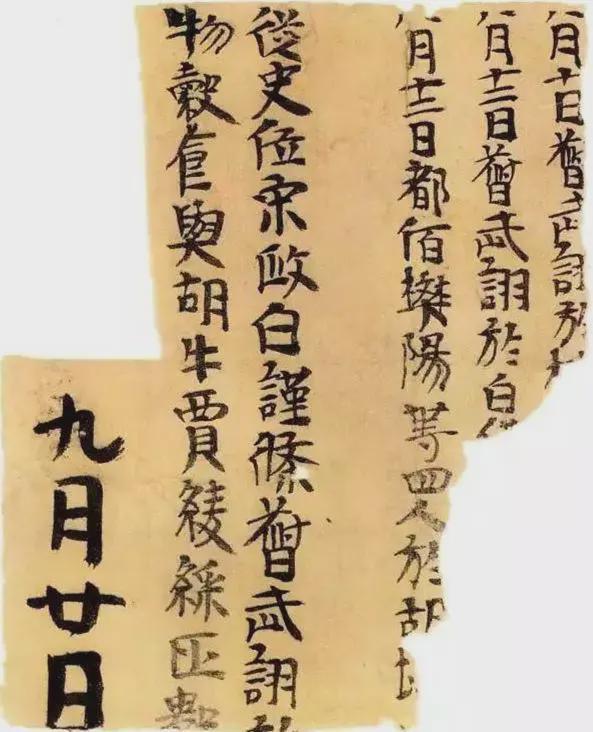 月十日武詡於
月十二日武詡於白
月十三日都佰樊陽等四人於胡
從史位宋政白謹條武詡於
物穀食與胡牛賈綾綵匹數
九月廿日